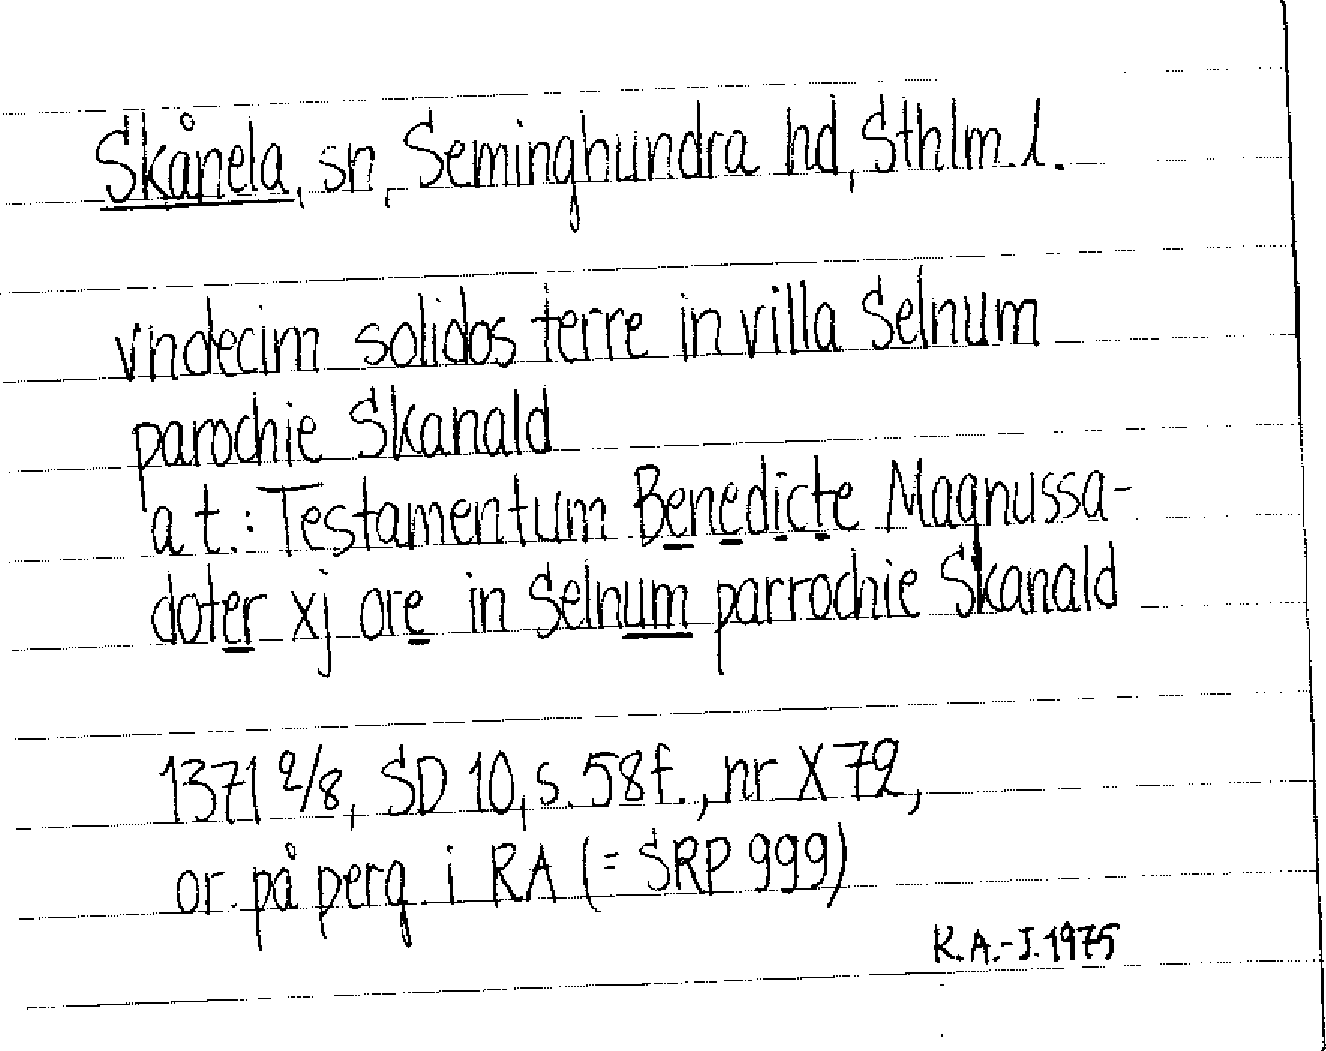 Skånela, sn, Seminghundra hd, Sthlm l.
vndecim solidos terre in villa Selnum
parochie Skanald
a t.: Testamentum Benedicte Magnussa-
doter xj ore in Selnum parrochie Skanald
1371 2/8, SD 10, s. 58 f., nr X 72,
or. på perg. i RA (= SRP 999)
K.A.-I. 1975